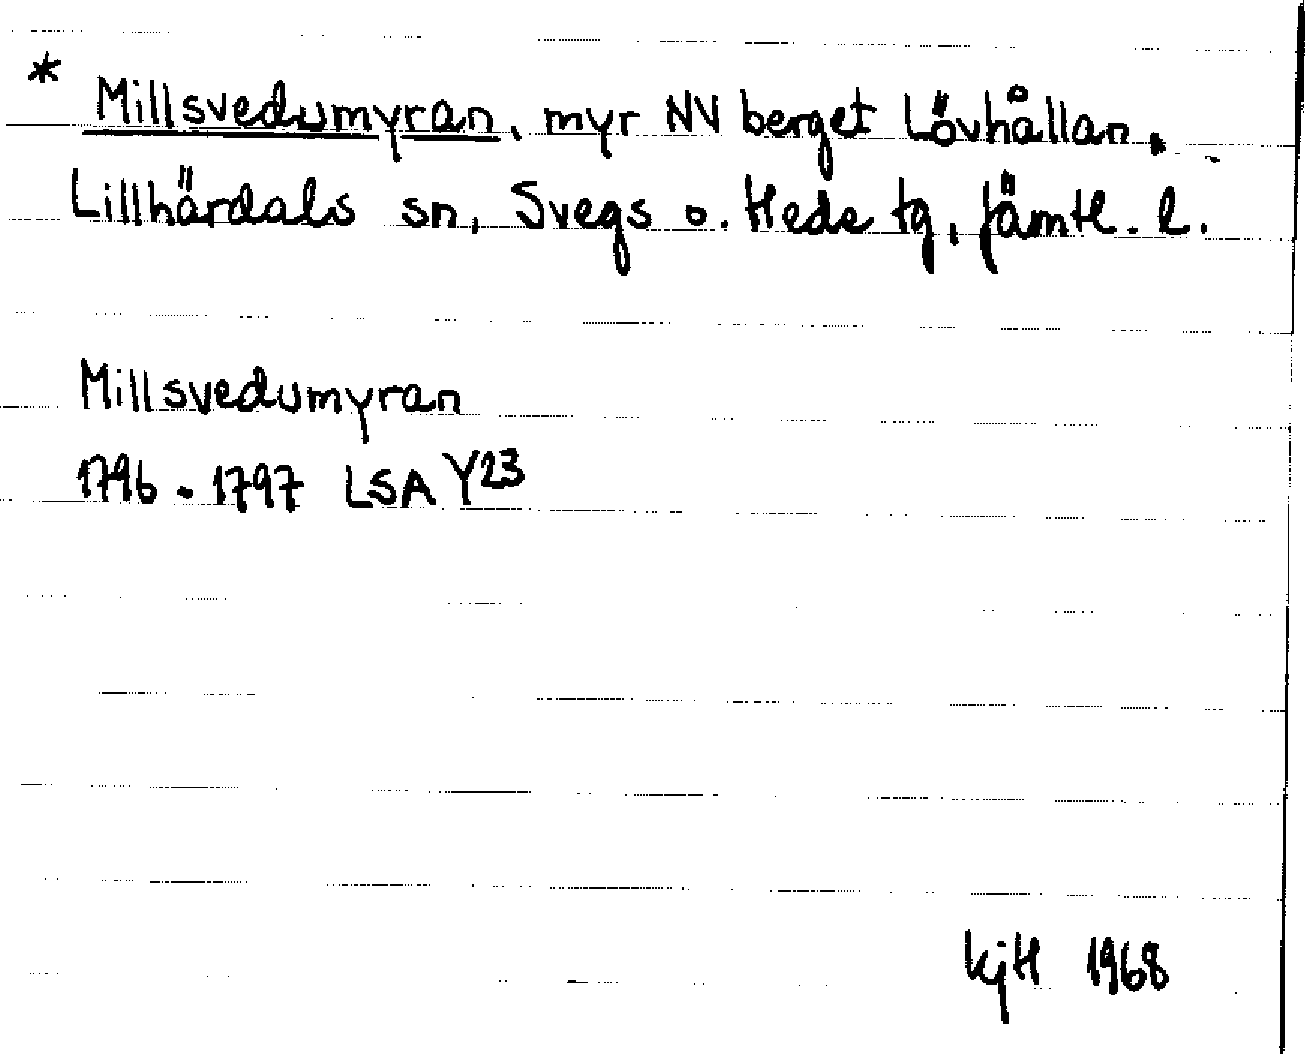 * Millsvedumyran, myr NV berget Lövhållan,
Lillhärdals sn, Svegs o. Hede tg, Jämtl. l.
Millsvedumyran
1796-1797 LSA Y23
KjH 1968